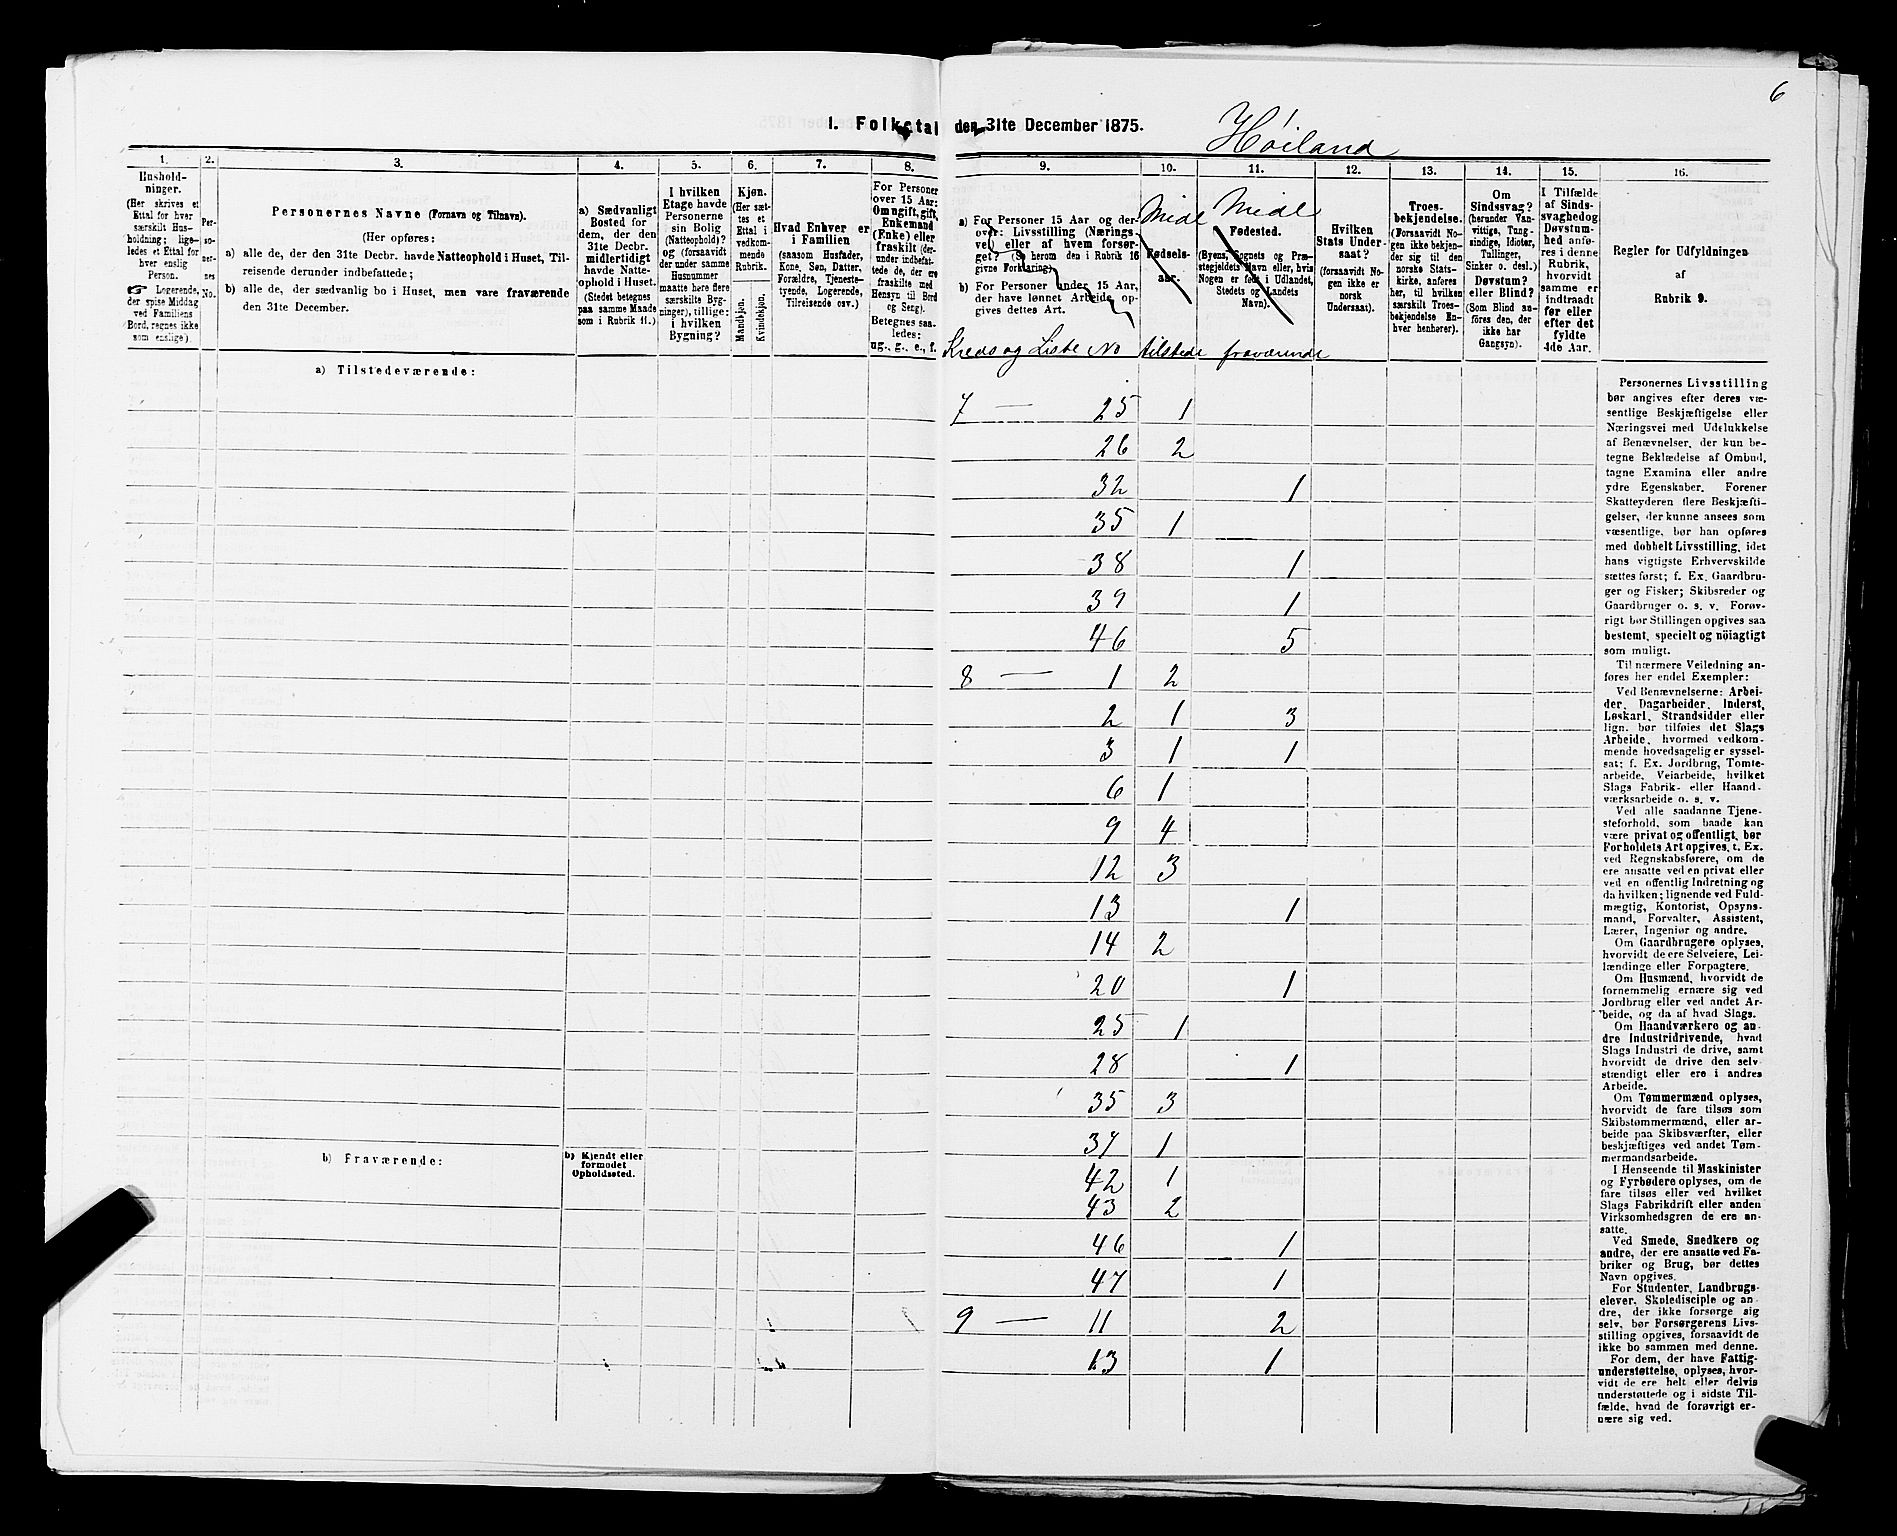 6
1. Folketal den 31te December 1875.
Høiland
1. 2. 3. 4. 5. 6. 7. 8. 9. 10. 11. 12. 13. 14. 15. 16.
Hushold-
ninger.
(Her skrives et
Ettal for hver
særskilt Hus-
holdning; lige-
ledes et Ettal for
hver enslig
Person.
☞ Logerende,
der spise Middag
ved Familiens
Bord, regnes ikke
som enslige).
Per-
so-
ner-
nes
No.
Personernes Navne (Fornavn og Tilnavn).
(Her opføres:
a) alle de, der den 31te Decbr. havde Natteophold i Huset, Til-
reisende derunder indbefattede;
b) alle de, der sædvanlig bo i Huset, men vare fraværende
den 31te December.
a) Sædvanligt
Bosted for
dem, der den
31te Decbr.
midlertidigt
havde Natte-
ophold i Huset.
(Stedet betegnes
paa samme Maade
som i Rubrik 11.)
I hvilken
Etage havde
Personerne
sin Bolig
(Natteophold)?
og (forsaavidt
der under samme
Husnummer
maatte høre flere
særskilte Byg-
ninger), tillige:
i hvilken
Bygning?
Kjøn.
(Her sæt-
tes et
Ettal i
vedkom-
mende
Rubrik.
Mandkjøn.
Kvindekjøn.
Hvad Enhver er
i Familien
(saasom Husfader,
Kone, Søn, Datter,
Forældre, Tjeneste-
tyende, Logerende,
Tilreisende osv.)
For Personer
over 15 Aar:
Om ugift, gift,
Enkemand
(Enke) eller
fraskilt (der-
under indbefat-
tede de, der ere
fraskilte med
Hensyn til Bord
og Seng).
Betegnes saa-
ledes:
ug., g., e., f.
a) For Personer 15 Aar og der-
over: Livsstilling (Nærings-
vei) eller af hvem forsør-
get? (Se herom den i Rubrik 16
givne Forklaring)
b) For Personer under 15 Aar,
der have lønnet Arbeide, op-
gives dettes Art.
Kreds og Liste No
Midl
Fødsels-
aar.
tilstede
Midl
Fødested.
(Byens, Sognets og Præ-
stegjeldets Navn eller, hvis
Nogen er født i Udlandet,
Stedets og Landets
Navn).
fraværende
Hvilken
Stats Under-
saat?
(forsaavidt No-
gen ikke er
norsk
Undersaat).
Troes-
bekjendelse.
(Forsaavidt No-
gen ikke bekjen-
der sig til den
norske Stats-
kirke, anføres
her, til hvilken
særskilt Troes-
bekjendelse En-
hver henhører).
Om
Sindssvag?
(herunder Van-
vittige, Tung-
sindige, Idioter,
Tullinger,
Sinker o. desl.)
Døvstum?
eller Blind?
(Som Blind an-
føres den, der
ikke har
Gangsyn).
I Tilfælde
af Sinds-
svaghedog
Døvstum-
hed anfø-
res i denne
Rubrik,
hvorvidt
samme er
indtraadt
før eller
efter det
fyldte
4de Aar.
Regler for Udfyldningen
af
Rubrik 9.
a) Tilstedeværende:
7 — 25 1
26 2
32 1
35 1
38 1
39 1
46 5
8 — 1 2
2 1 3
3 1 1
6 1
9 4
12 3
13 1
14 2
20 1
25 1
28 1
35 3
37 1
42 1
43 2
46 1
47 1
9 — 11 2
13 1
b) Fraværende:
b) Kjendt eller
formodet
Opholdssted.
Personernes Livsstilling
bør angives efter deres væ-
sentlige Beskjæftigelse eller
Næringsvei med Udelukkelse
af Benævnelser, der kun be-
tegne Beklædelse af Ombud,
tagne Examina eller andre
ydre Egenskaber. Forener
Skatteyderen flere Beskjæfti-
gelser, der kunne ansees som
væsentlige, bør han opføres
med dobbelt Livsstilling, idet
hans vigtigste Erhvervskilde
sættes først; f. Ex. Gaardbru-
ger og Fisker; Skibsreder og
Gaardbruger o. s. v. Forøv-
rigt bør Stillingen opgives saa
bestemt, specielt og nöiagtigt
som muligt.
Til nærmere Veiledning an-
føres her endel Exempler:
Ved Benævnelserne: Arbei-
der, Dagarbeider, Inderst,
Løskarl, Strandsidder eller
lign. bør tilføies det Slags
Arbeide, hvormed vedkom-
mende hovedsagelig er syssel-
sat; f. Ex. Jordbrug, Tomte-
arbeide, Veiarbeide, hvilket
Slags Fabrik- eller Haand-
værksarbeide o. s. v.
Ved alle saadanne Tjene-
steforhold, som baade kan
være privat og offentligt, bør
Forholdets Art opgives, t. Ex.
ved Regnskabsførere, om de
ere ansatte ved en privat eller
ved en offentlig Indretning og
da hvilken; lignende ved Fuld-
mægtig, Kontorist, Opsyns-
mand, Forvalter, Assistent,
Lærer, Ingeniør og andre.
Om Gaardbrugere oplyses,
hvorvidt de ere Selveiere, Lei-
lændinge eller Forpagtere.
Om Husmænd, hvorvidt de
fornemmelig ernære sig ved
Jordbrug eller ved andet Ar-
beide, og da af hvad Slags.
Om Haandværkere og an-
dre Industridrivende, hvad
Slags Industri de drive, samt
hvorvidt de drive den selv-
stændigt eller ere i andres
Arbeide.
Om Tømmermænd oplyses,
hvorvidt de fare tilsøs som
Skibstømmermænd, eller ar-
beide paa Skibsværfter, eller
beskjæftiges ved andet Tøm-
mermandsarbeide.
I Henseende til Maskinister
og Fyrbødere oplyses, om de
fare tilsøs eller ved hvilket
Slags Fabrikdrift eller anden
Virksomhedsgren de ere an-
satte.
Ved Smede, Snedkere og
andre, der ere ansatte ved Fa-
briker og Brug, bør dettes
Navn opgives.
For Studenter, Landbrugs-
elever, Skoledisciple og an-
dre, der ikke forsørge sig
selv, bør Forsørgerens Livs-
stilling opgives, forsaavidt de
ikke bo sammen med denne.
For dem, der have Fattig-
understøttelse, oplyses, hvor-
vidt de ere helt eller delvis
understøttede og i sidste Til-
fælde, hvad de forøvrigt er-
nære sig ved.